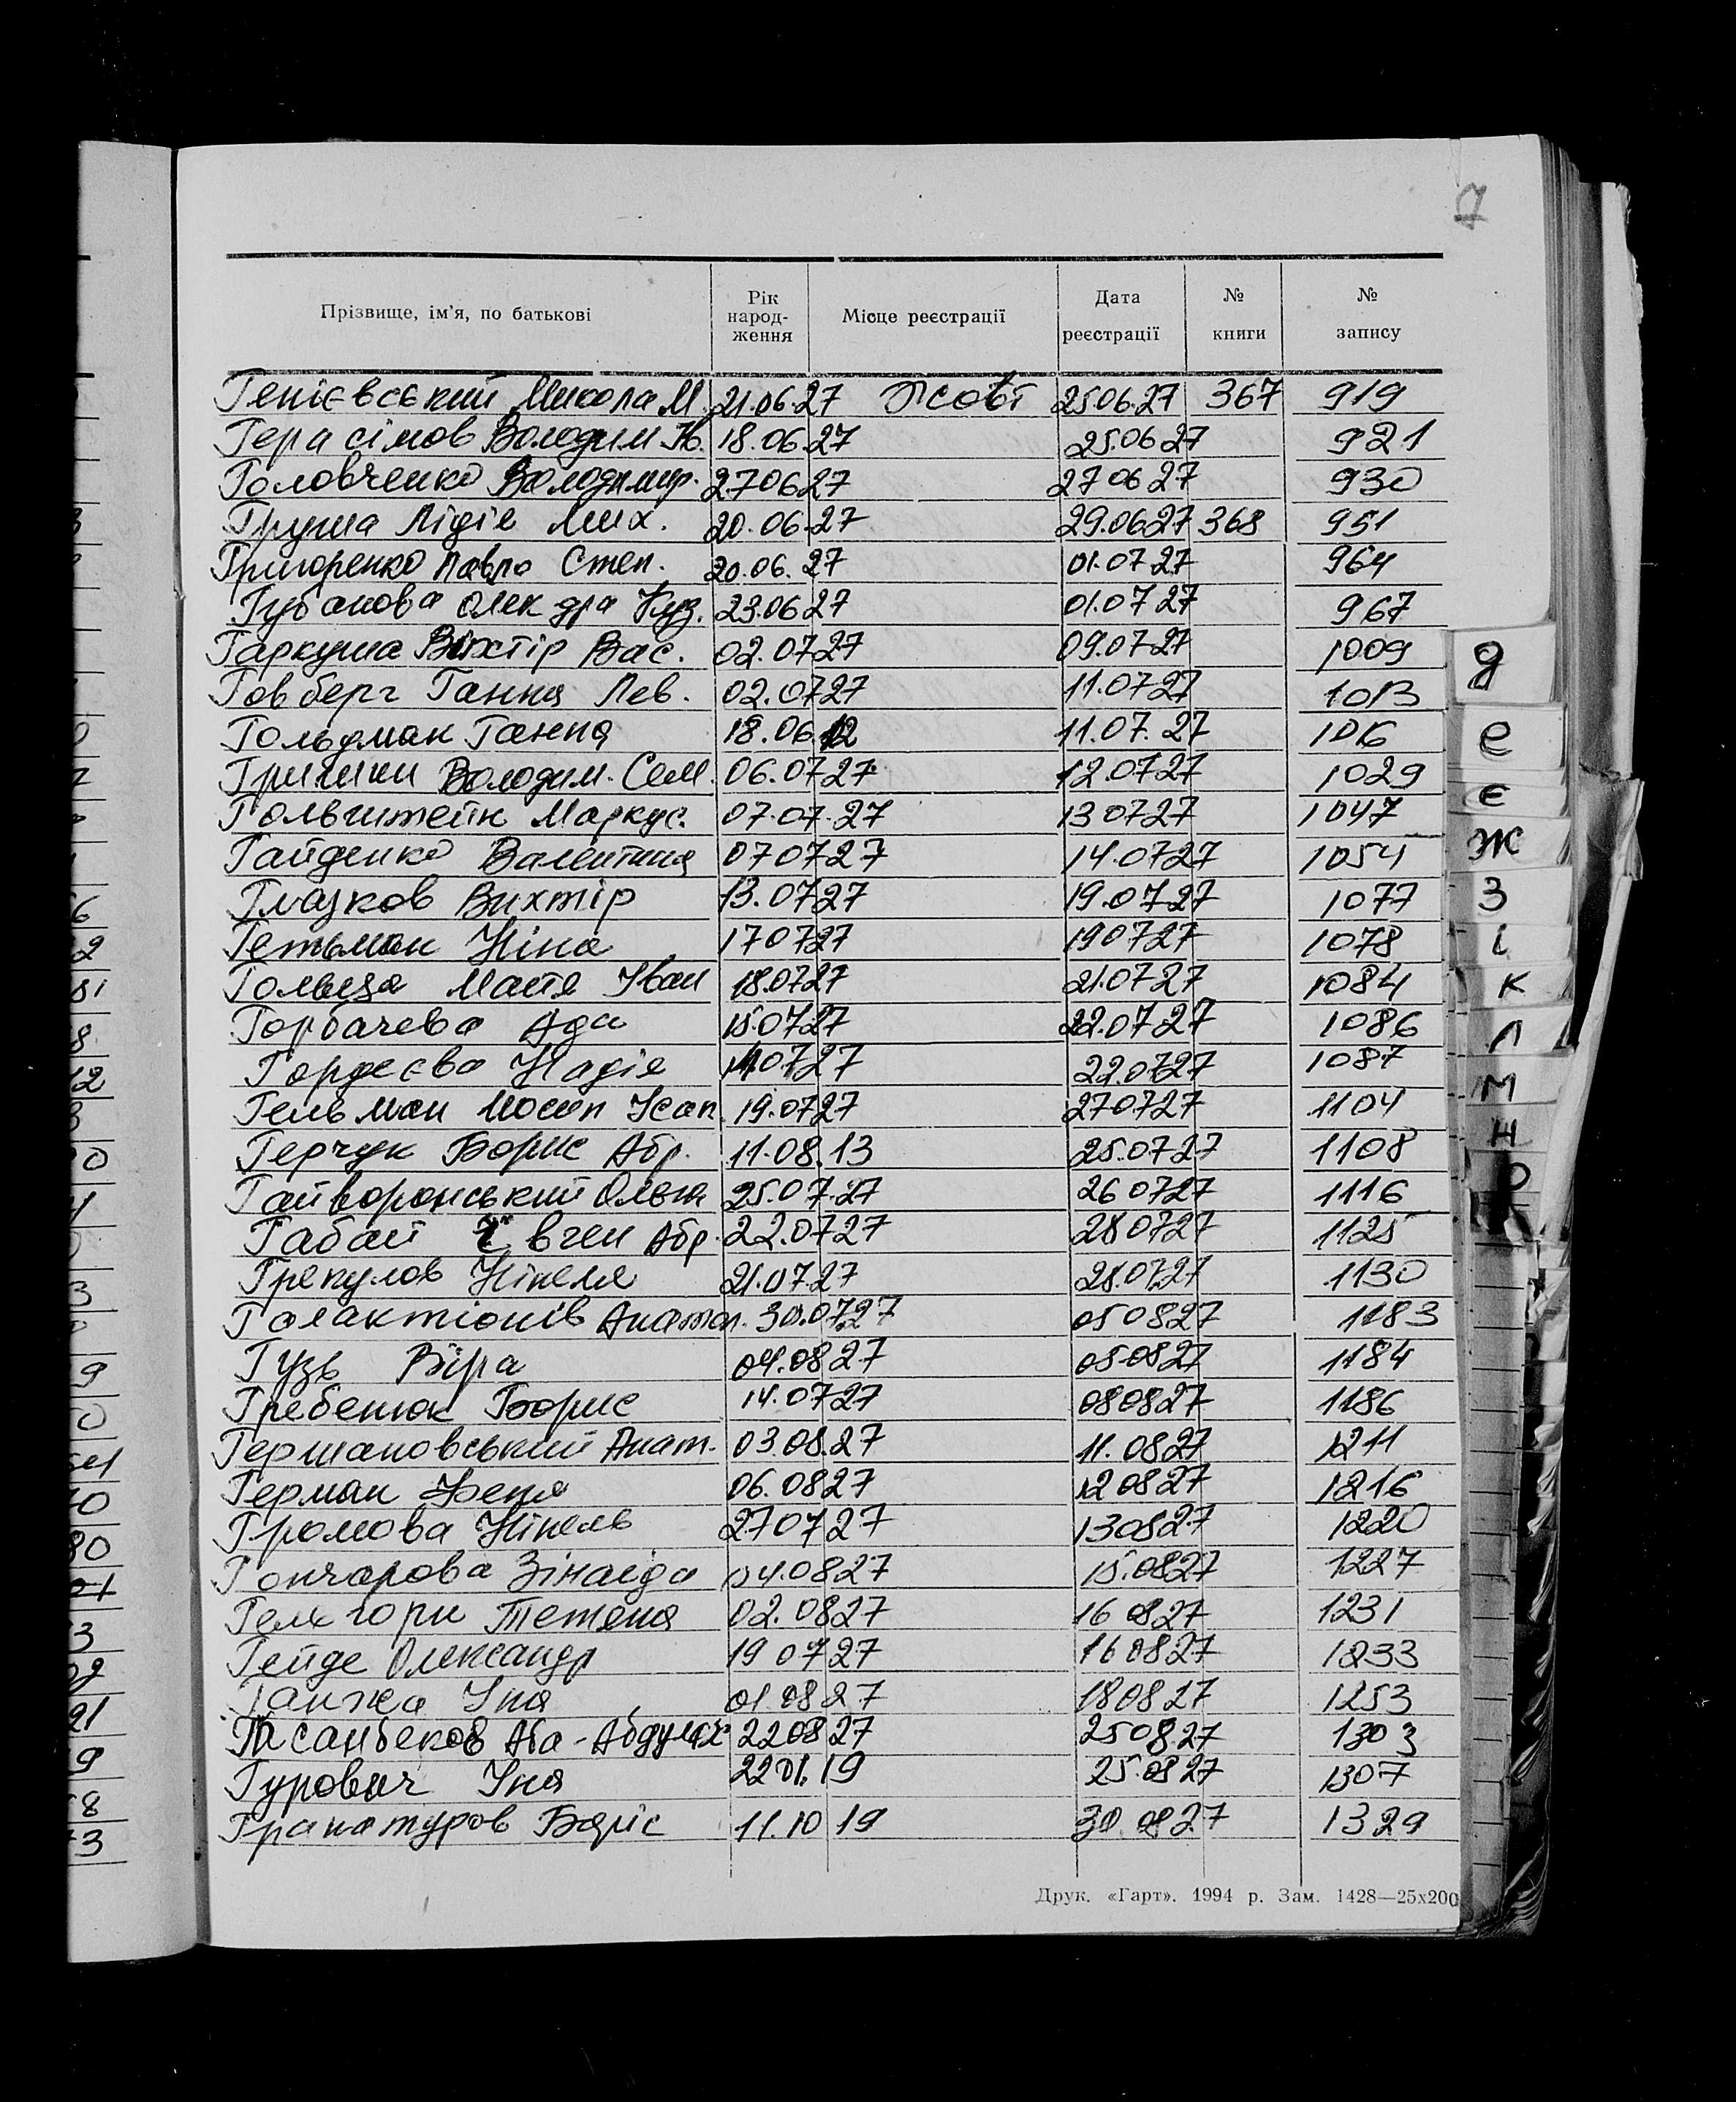 7
Прізвище, ім'я, по батькові Рік народ-ження Місце реєстрації Дата реєстрації № книги № запису
Генієвський Микола М. 21.06.27 Жовт 25.06.27 367 919
Герасімов Володим. 18.06.27 25.06.27 921
Головченко Володимир. 27.06.27 27.06.27 930
Груша Лідія Мих. 20.06.27 29.06.27 368 951
Григоренко Павло Степ. 20.06.27 01.07.27 964
Губанова Олек дра Куз. 23.06.27 01.07.27 967
Гаркуша Віктір Вас. 02.07.27 09.07.27 1009
Говберг Ганна Лев. 02.07.27 11.07.27 1013
Гольдман Ганна 18.06.12 11.07.27 1016
Гришин Володим. Сем. 06.07.27 12.07.27 1029
Гольгштейн Маркус. 07.07.27 13.07.27 1047
Гайденко Валентина 07.07.27 14.07.27 1054
Глазков Вихтір 13.07.27 19.07.27 1077
Гетьман Ніна 17.07.27 19.07.27 1078
Майя Іван 18.07.27 21.07.27 1084
Горбачева Ада 15.07.27 22.07.27 1086
Гордеєва Надія 22.07.27 1087
Гельман Йосип Ісап 19.07.27 27.07.27 1104
Герчук Борис Абр. 11.08.13 25.07.27 1108
Гайворонський Ольга 25.07.27 26.07.27 1116
Габай Євген Абр. 22.07.27 28.07.27 1125
Грекулов Нінеля 21.07.27 28.07.27 1130
Галактіонів Анатол. 30.07.27 05.08.27 1183
Гузь Віра 04.08.27 05.08.27 1184
Гребенюк Борис 14.07.27 08.08.27 1186
Гершановський Анат. 03.08.27 11.08.27 1211
Герман Женя 06.08.27 12.08.27 1216
Громова Нінель 27.07.27 13.08.27 1220
Гончарова Зінаіда 04.08.27 15.08.27 1227
Гельгорн Тетяна 02.08.27 16.08.27 1231
Гейде Олександр 19.07.27 16.08.27 1233
Ганжа Іня 01.08.27 18.08.27 1253
Гасанбеков Аба-Абдулах 22.08.27 25.08.27 1303
Гурович Іня 22.01.19 25.08.27 1307
Гранатуров Боріс 11.10.19 30.08.27 1329
Друк. «Гарт». 1994 р. Зам. 1428—25х200
д
е
є
ж
з
і
к
л
м
н
о